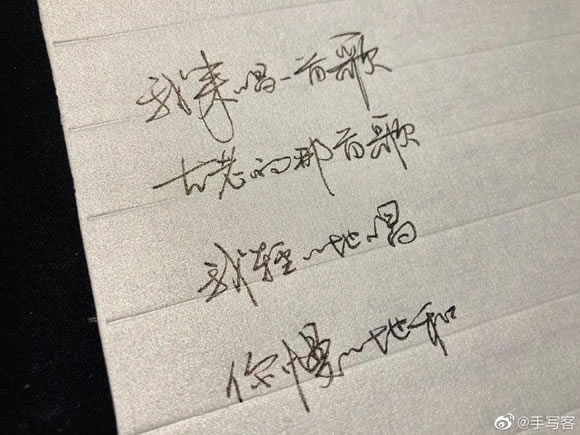 我来唱一首歌
古老的那首歌
我轻々地唱
你慢々地和
@手写客